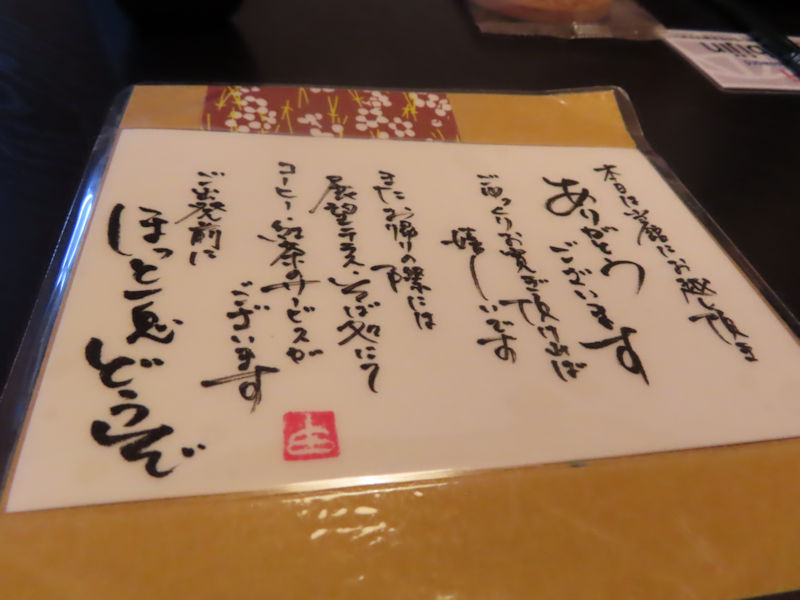 本日は当館にお越し頂き
ありがとう
ございます
ごゆっくりお寛ぎ頂ければ
嬉しいです
また、お帰りの際には
展望テラス・そば処にて
コーヒー・紅茶のサービスが
ございます
ご出発前に
ほっと一息どうぞ